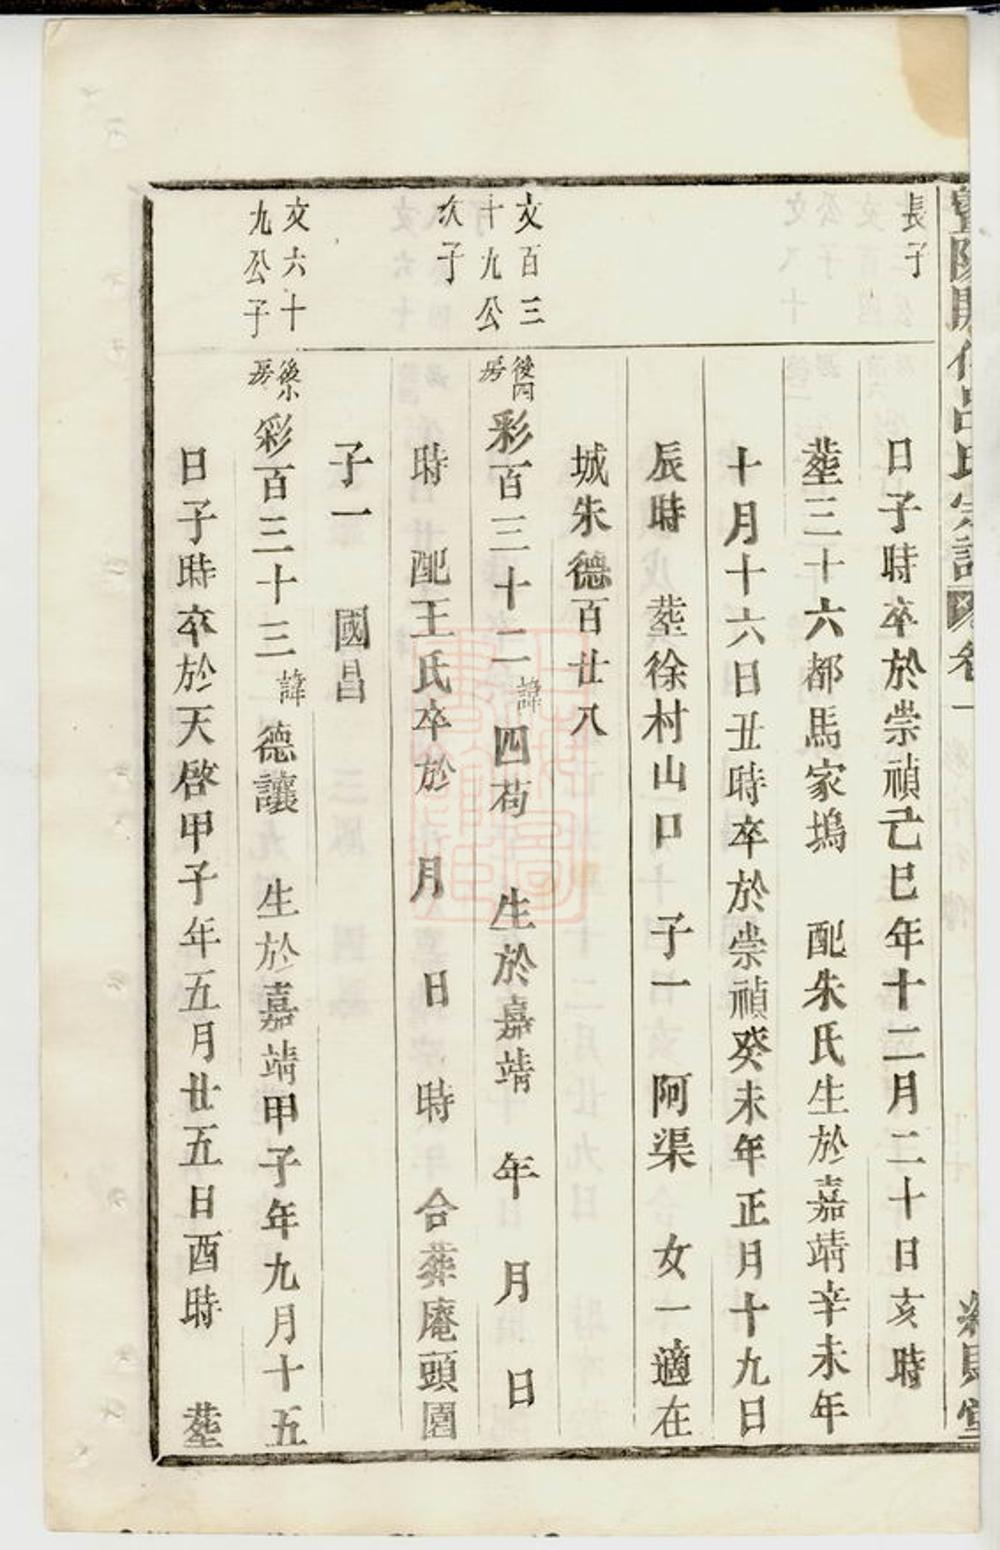 呂氏宗譜 卷一
長子
日子時卒於崇禎己巳年十二月二十日亥時
塟三十六都馬家塢 配朱氏生於嘉靖辛未年
十月十六日丑時卒於崇禎癸未年正月十九日
辰時 塟徐村山口 子一 阿渠 女一適在
城朱德百廿八
文百三
十九公
次子
後四
房
彩百三十二諱四苟 生於嘉靖 年 月 日
時 配王氏卒於 月 日 時 合葬庵頭園
子一 國昌
文六十
九公子
後小
房
彩百三十三諱德讓 生於嘉靖甲子年九月十五
日子時卒於天啓甲子年五月廿五日酉時 塟